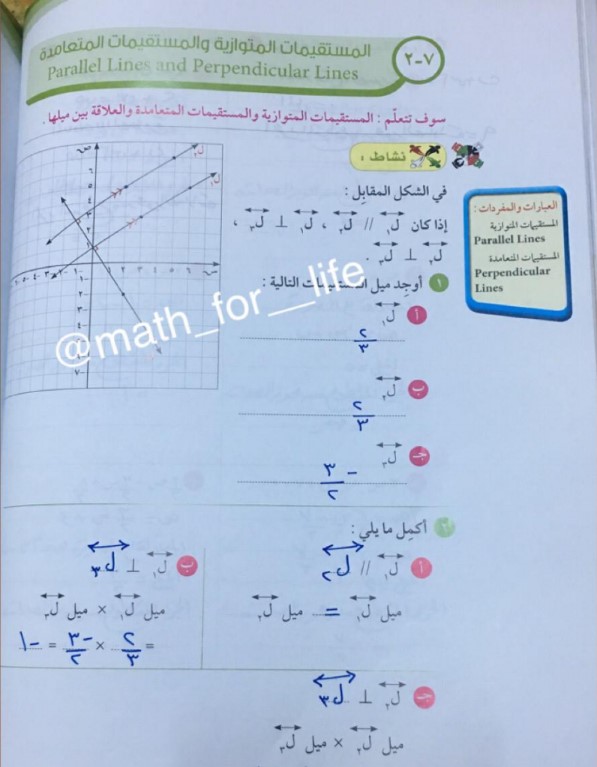 ٧-٢
المستقيمات المتوازية والمستقيمات المتعامدة
Parallel Lines and Perpendicular Lines
سوف تتعلّم : المستقيمات المتوازية والمستقيمات المتعامدة والعلاقة بين ميلها .
نشاط :
العبارات والمفردات :
المستقيمات المتوازية
Parallel Lines
المستقيمات المتعامدة
Perpendicular
Lines
في الشكل المقابل :
إذا كان ل١ // ل٢ ، ل١ ⊥ ل٣ ،
ل٢ ⊥ ل٣ .
١ أوجد ميل المستقيمات التالية :
أ ل١
٢/٣
ب ل٢
٢/٣
جـ ل٣
-٣/٢
@math_for__life
٢ أكمل ما يلي :
أ ل١ // ل٢
ميل ل١ = ميل ل٢
ب ل١ ⊥ ل٣
ميل ل١ × ميل ل٣
= ٢/٣ × -٣/٢ = -١
جـ ل٢ ⊥ ل٣
ميل ل٢ × ميل ل٣